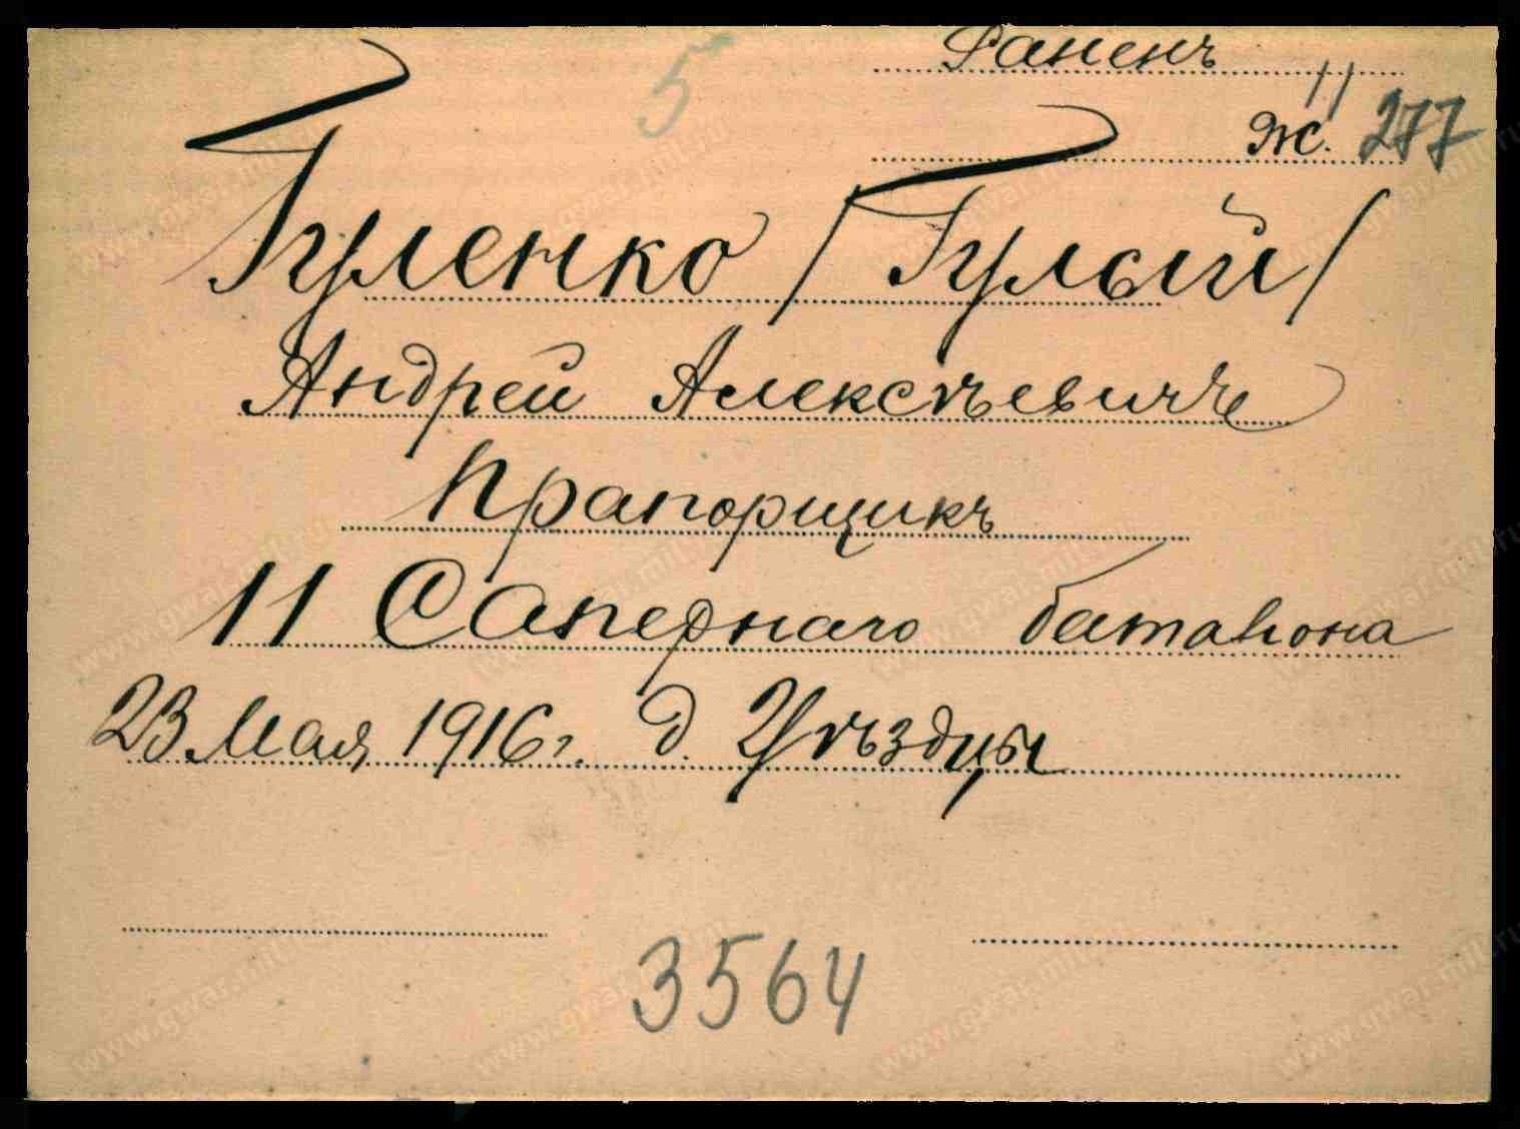 5
Раненъ
Ж. 11 277
Гуленко /Гулый/
Андрей Алексѣевичъ
Прапорщикъ
11 Сапернаго баталiона
23 Мая 1916г. д.
3564
www.gwar.mil.ru